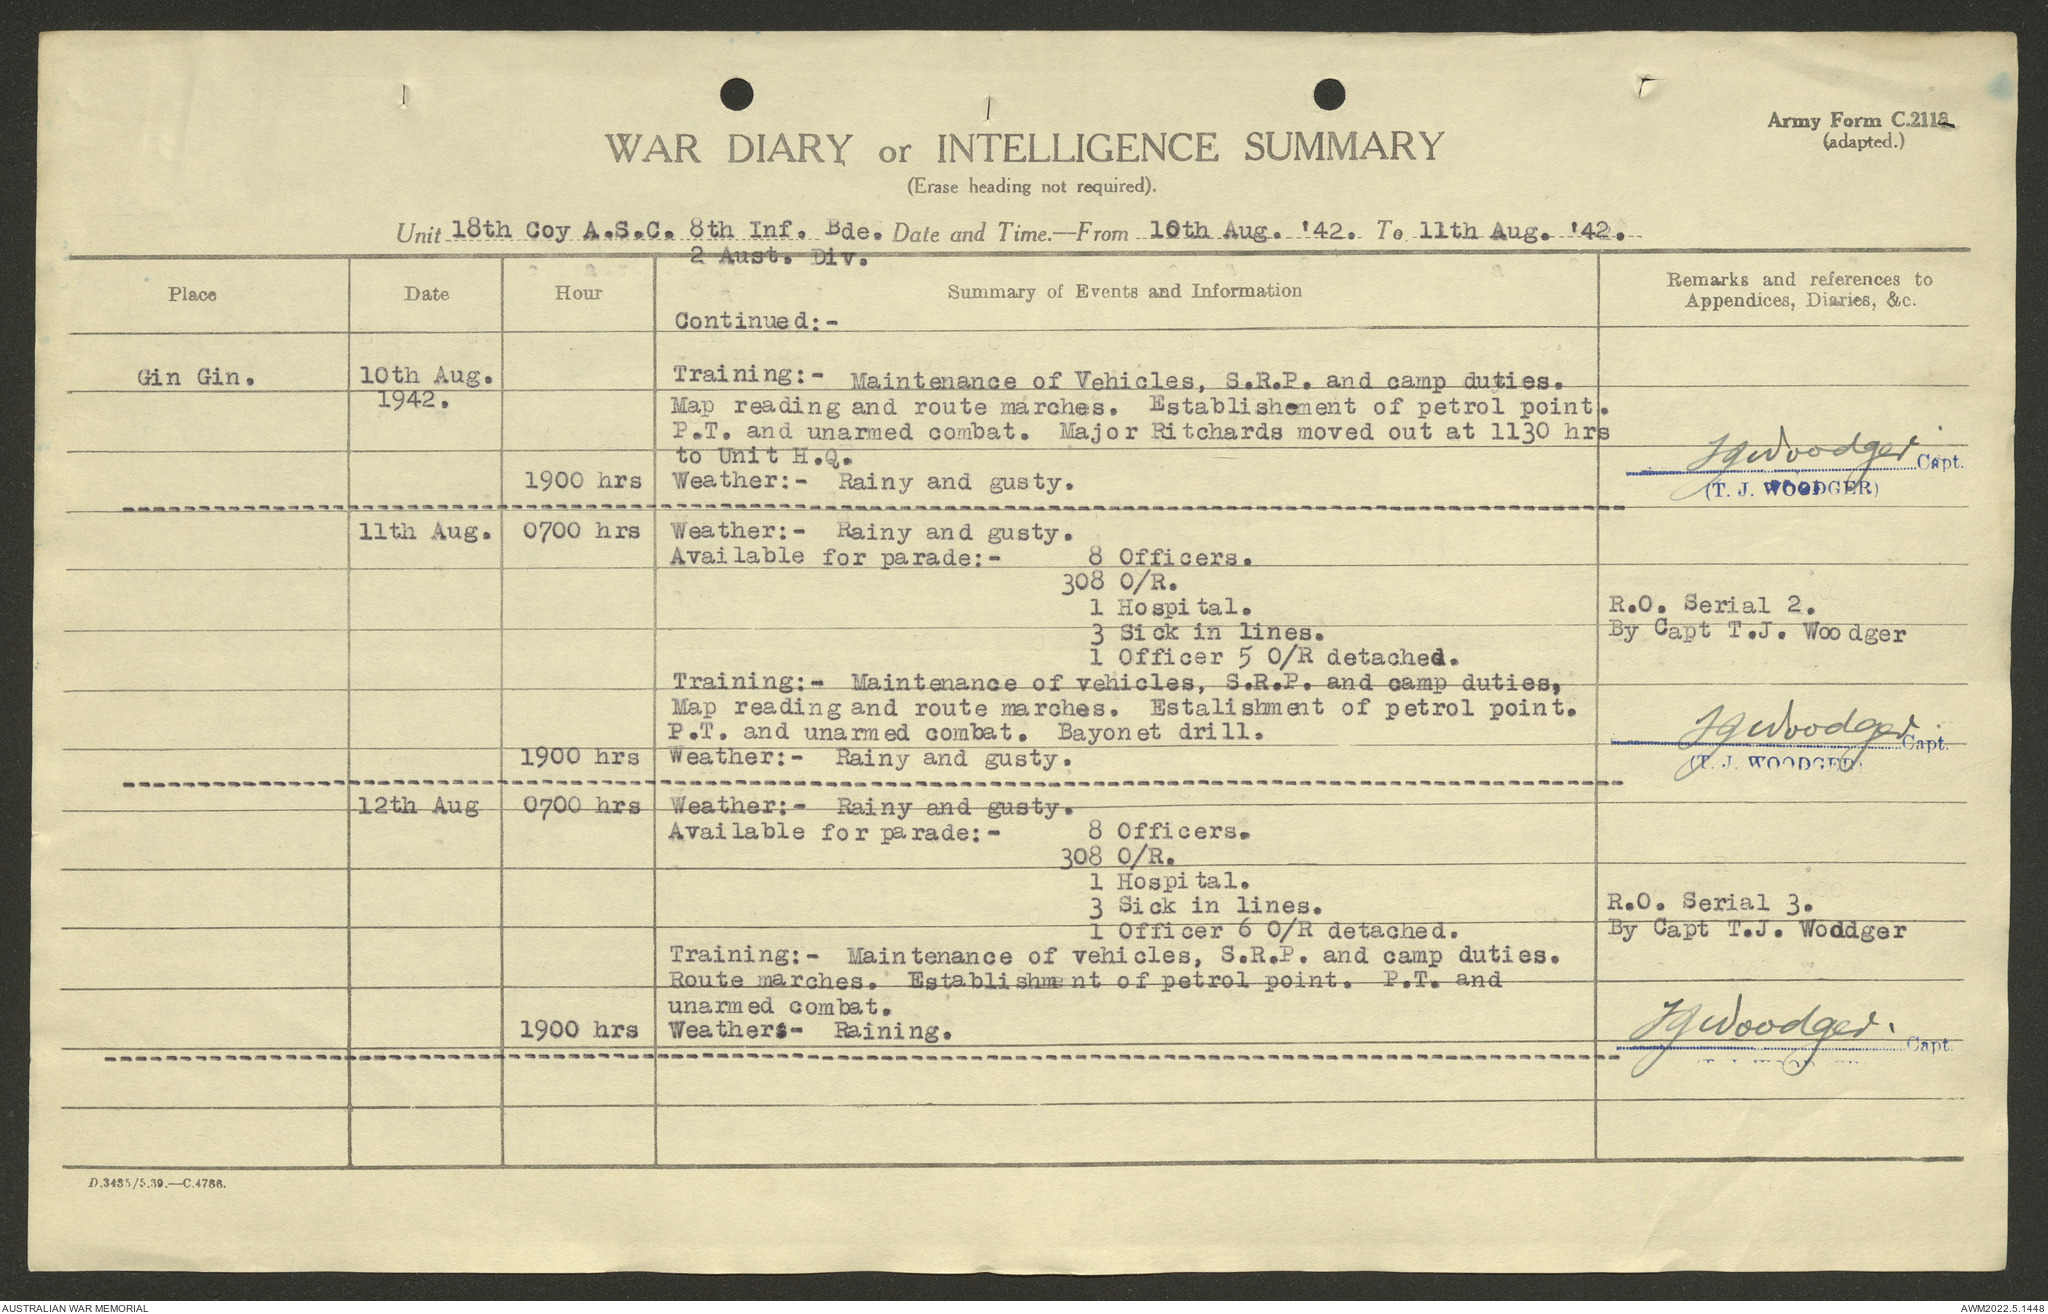 Army Form C.2118
(adapted.)
WAR DIARY or INTELLIGENCE SUMMARY
(Erase heading not required).
Unit 18th Coy A.S.C. 8th Inf. Bde. Date and Time.—From 10th Aug. '42. To 11th Aug. '42.
2 Aust. Div.
Place Date Hour Summary of Events and Information Remarks and references to
Appendices, Diaries, &c.
Continued:-
Gin Gin. 10th Aug. Training:- Maintenance of Vehicles, S.R.P. and camp duties.
1942. Map reading and route marches. Establishement of petrol point.
P.T. and unarmed combat. Major Ritchards moved out at 1130 hrs
to Unit H.Q. TJWoodger Capt.
1900 hrs Weather:- Rainy and gusty. (T. J. WOODGER)
11th Aug. 0700 hrs Weather:- Rainy and gusty.
Available for parade:- 8 Officers.
308 O/R.
1 Hospital. R.O. Serial 2.
3 Sick in lines. By Capt T.J. Woodger
1 Officer 5 O/R detached.
Training:- Maintenance of vehicles, S.R.P. and camp duties,
Map reading and route marches. Estalishment of petrol point.
P.T. and unarmed combat. Bayonet drill. TJWoodger Capt.
1900 hrs Weather:- Rainy and gusty. (T. J. WOODGER)
12th Aug 0700 hrs Weather:- Rainy and gusty.
Available for parade:- 8 Officers.
308 O/R.
1 Hospital.
3 Sick in lines. R.O. Serial 3.
1 Officer 6 O/R detached. By Capt T.J. Woddger
Training:- Maintenance of vehicles, S.R.P. and camp duties.
Route marches. Establishment of petrol point. P.T. and
unarmed combat.
1900 hrs Weather:- Raining. TJWoodger. Capt.
D.3485/5.39.—C.4786.
AUSTRALIAN WAR MEMORIAL AWM2022.5.1448